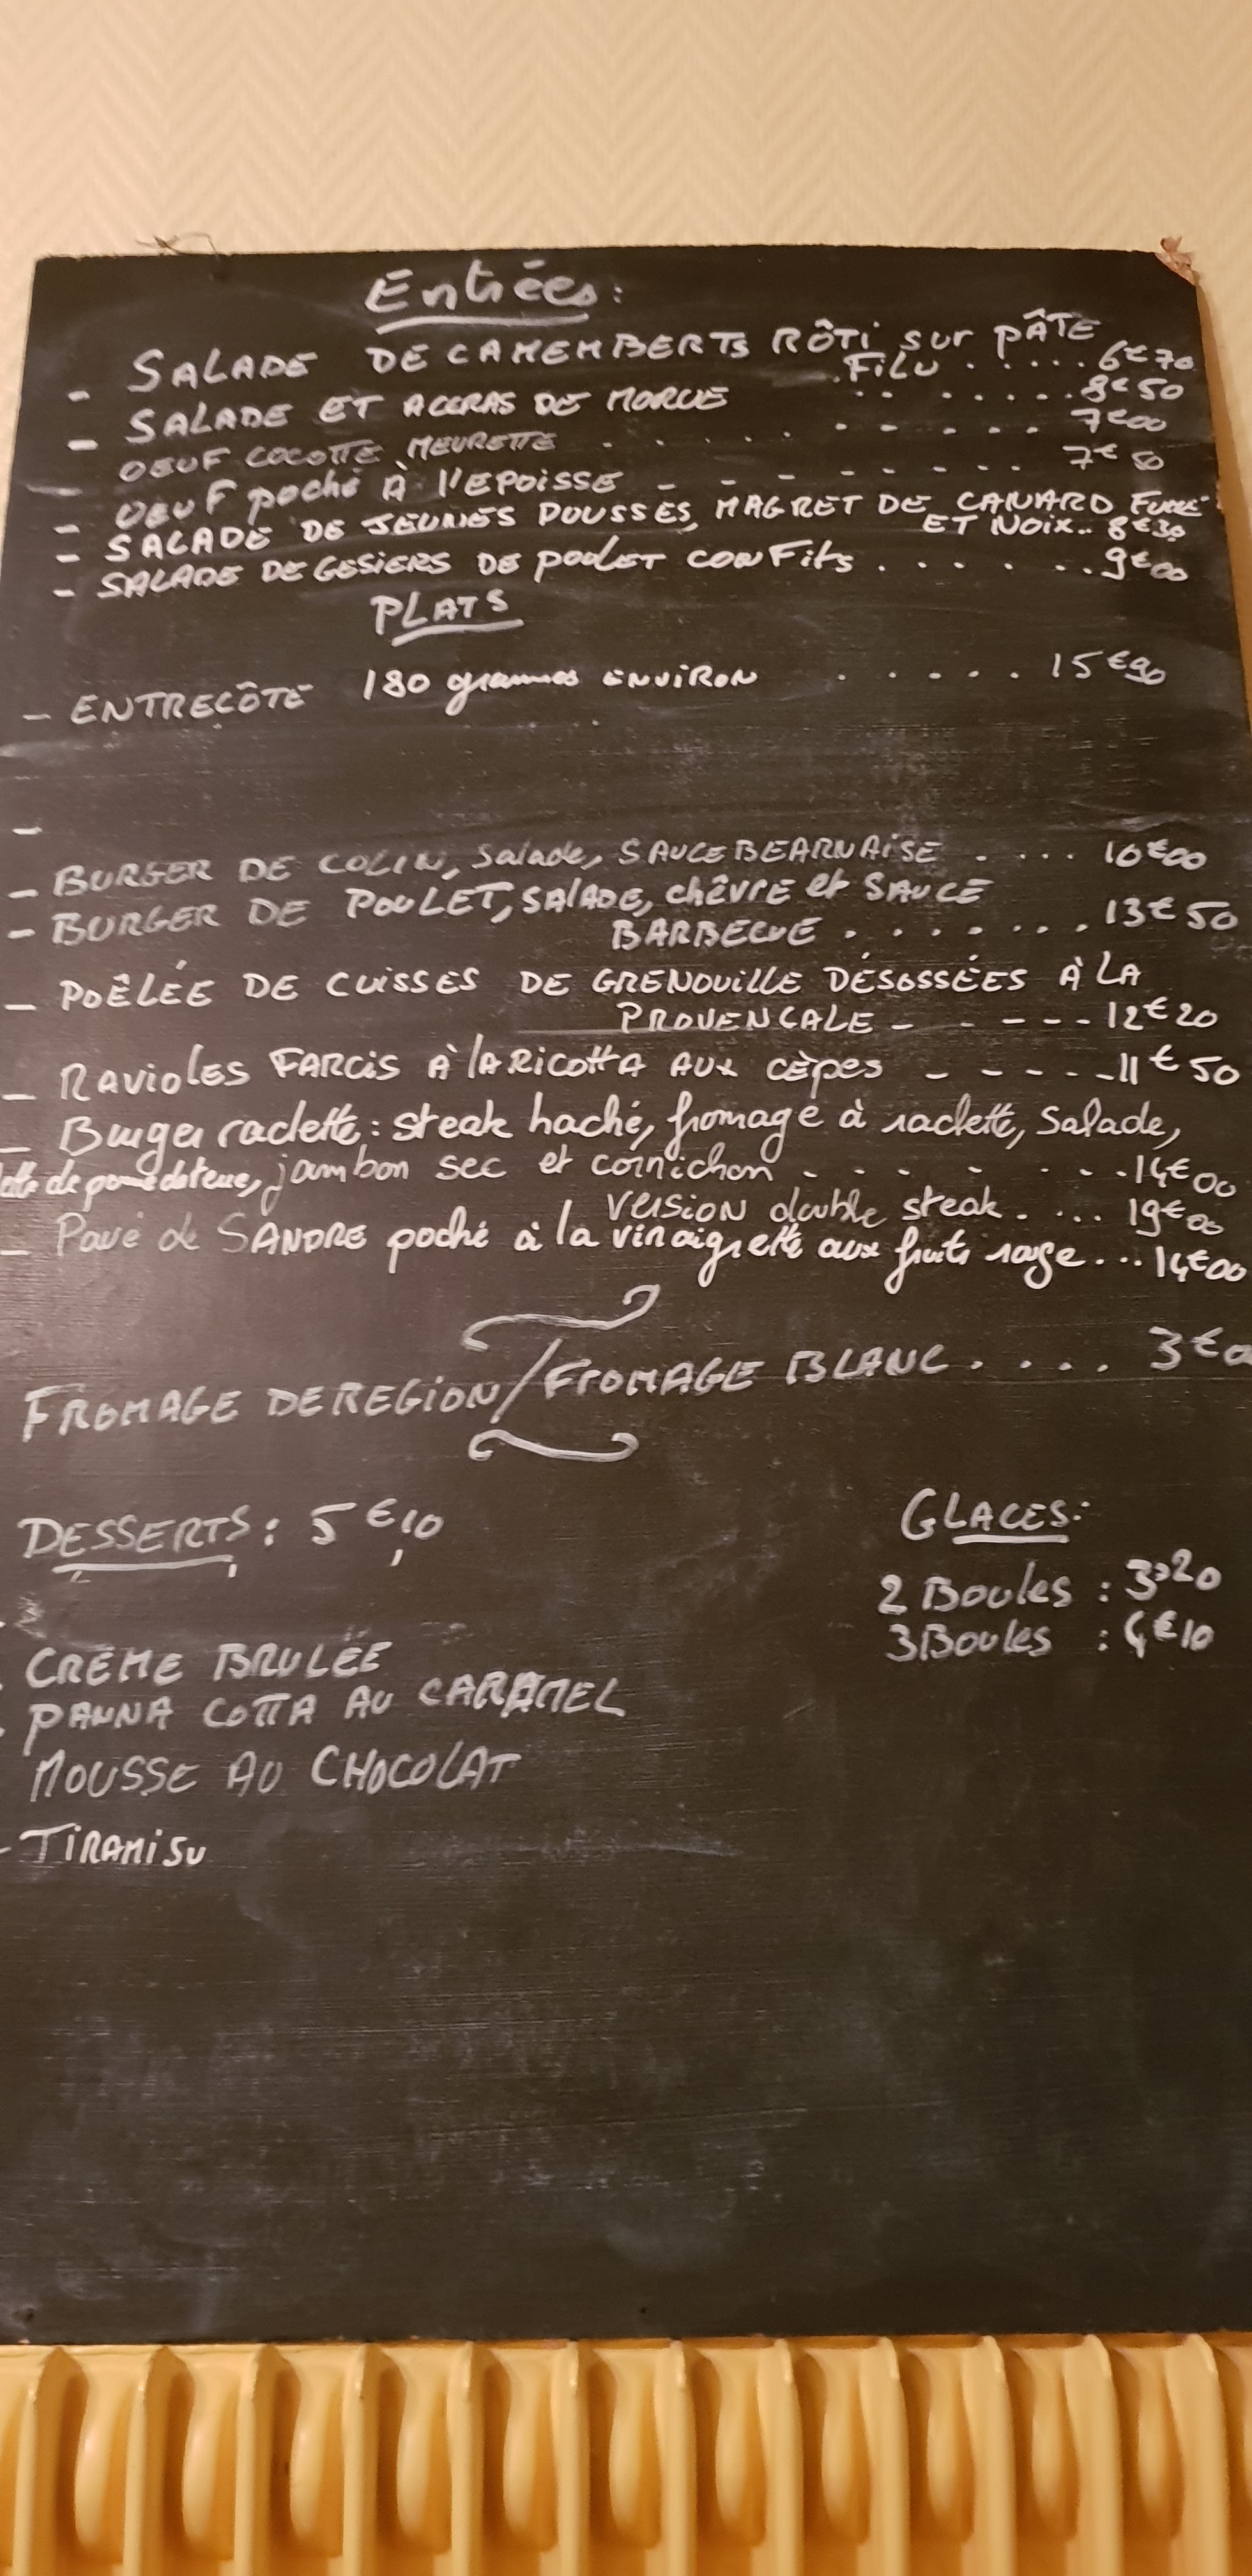 Entrées:
- SALADE DE CAMEMBERTS RÔTI sur PÂTE
FILO ..... 6€70
- SALADE ET ACCRAS DE MORUE .. ...... 8€50
- OEUF COCOTTE MEURETTE . . . . . . . . . 7€00
- OEUF poché À l'EPOISSE - - - - - . . . 7€50
- SALADE DE JEUNES POUSSES, MAGRET DE CANARD FUMÉ
ET NOIX.. 8€30
- SALADE DE GESIERS DE POULET CONFITS . . . . . .. 9€00
PLATS
- ENTRECÔTE 180 grammes ENVIRON . . . . . 15€90
-
- BURGER DE COLIN, Salade, SAUCE BEARNAISE . ... 10€00
- BURGER DE POULET, SALADE, chêvre et SAUCE
BARBECUE . . . . . . . . 13€50
- POÊLÉE DE CUISSES DE GRENOUILLE DÉSOSSÉES À LA
PROVENCALE - - - - - - 12€20
- RAVIOLES FARCIS À lA RICOTTA AUX CÈPES - - - - - - 11€50
- Burger raclette: steak haché, fromage à raclette, Salade,
de pomme de terre, jambon sec et cornichon - - - - - - - 14€00
VERSION double steak. ... 19€00
- Pavé de SANDRE poché à la vinaigrette aux fruits rouge... 14€00
FROMAGE DE REGION/FROMAGE BLANC . . . . 3€
DESSERTS: 5€10
GLACES:
2 Boules : 3,20
3 Boules : 4€10
CRÈME BRULÉE
PANNA COTTA AU CARAMEL
MOUSSE AU CHOCOLAT
- TIRAMISU